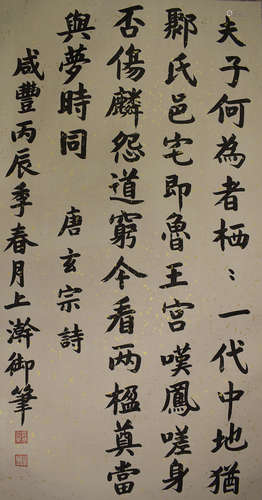 夫子何為者栖〻一代中地猶
鄹氏邑宅即魯王宮嘆鳳嗟身
否傷麟怨道窮今看两楹奠當
與夢時同　唐玄宗詩
咸豐丙辰季春月上澣御筆